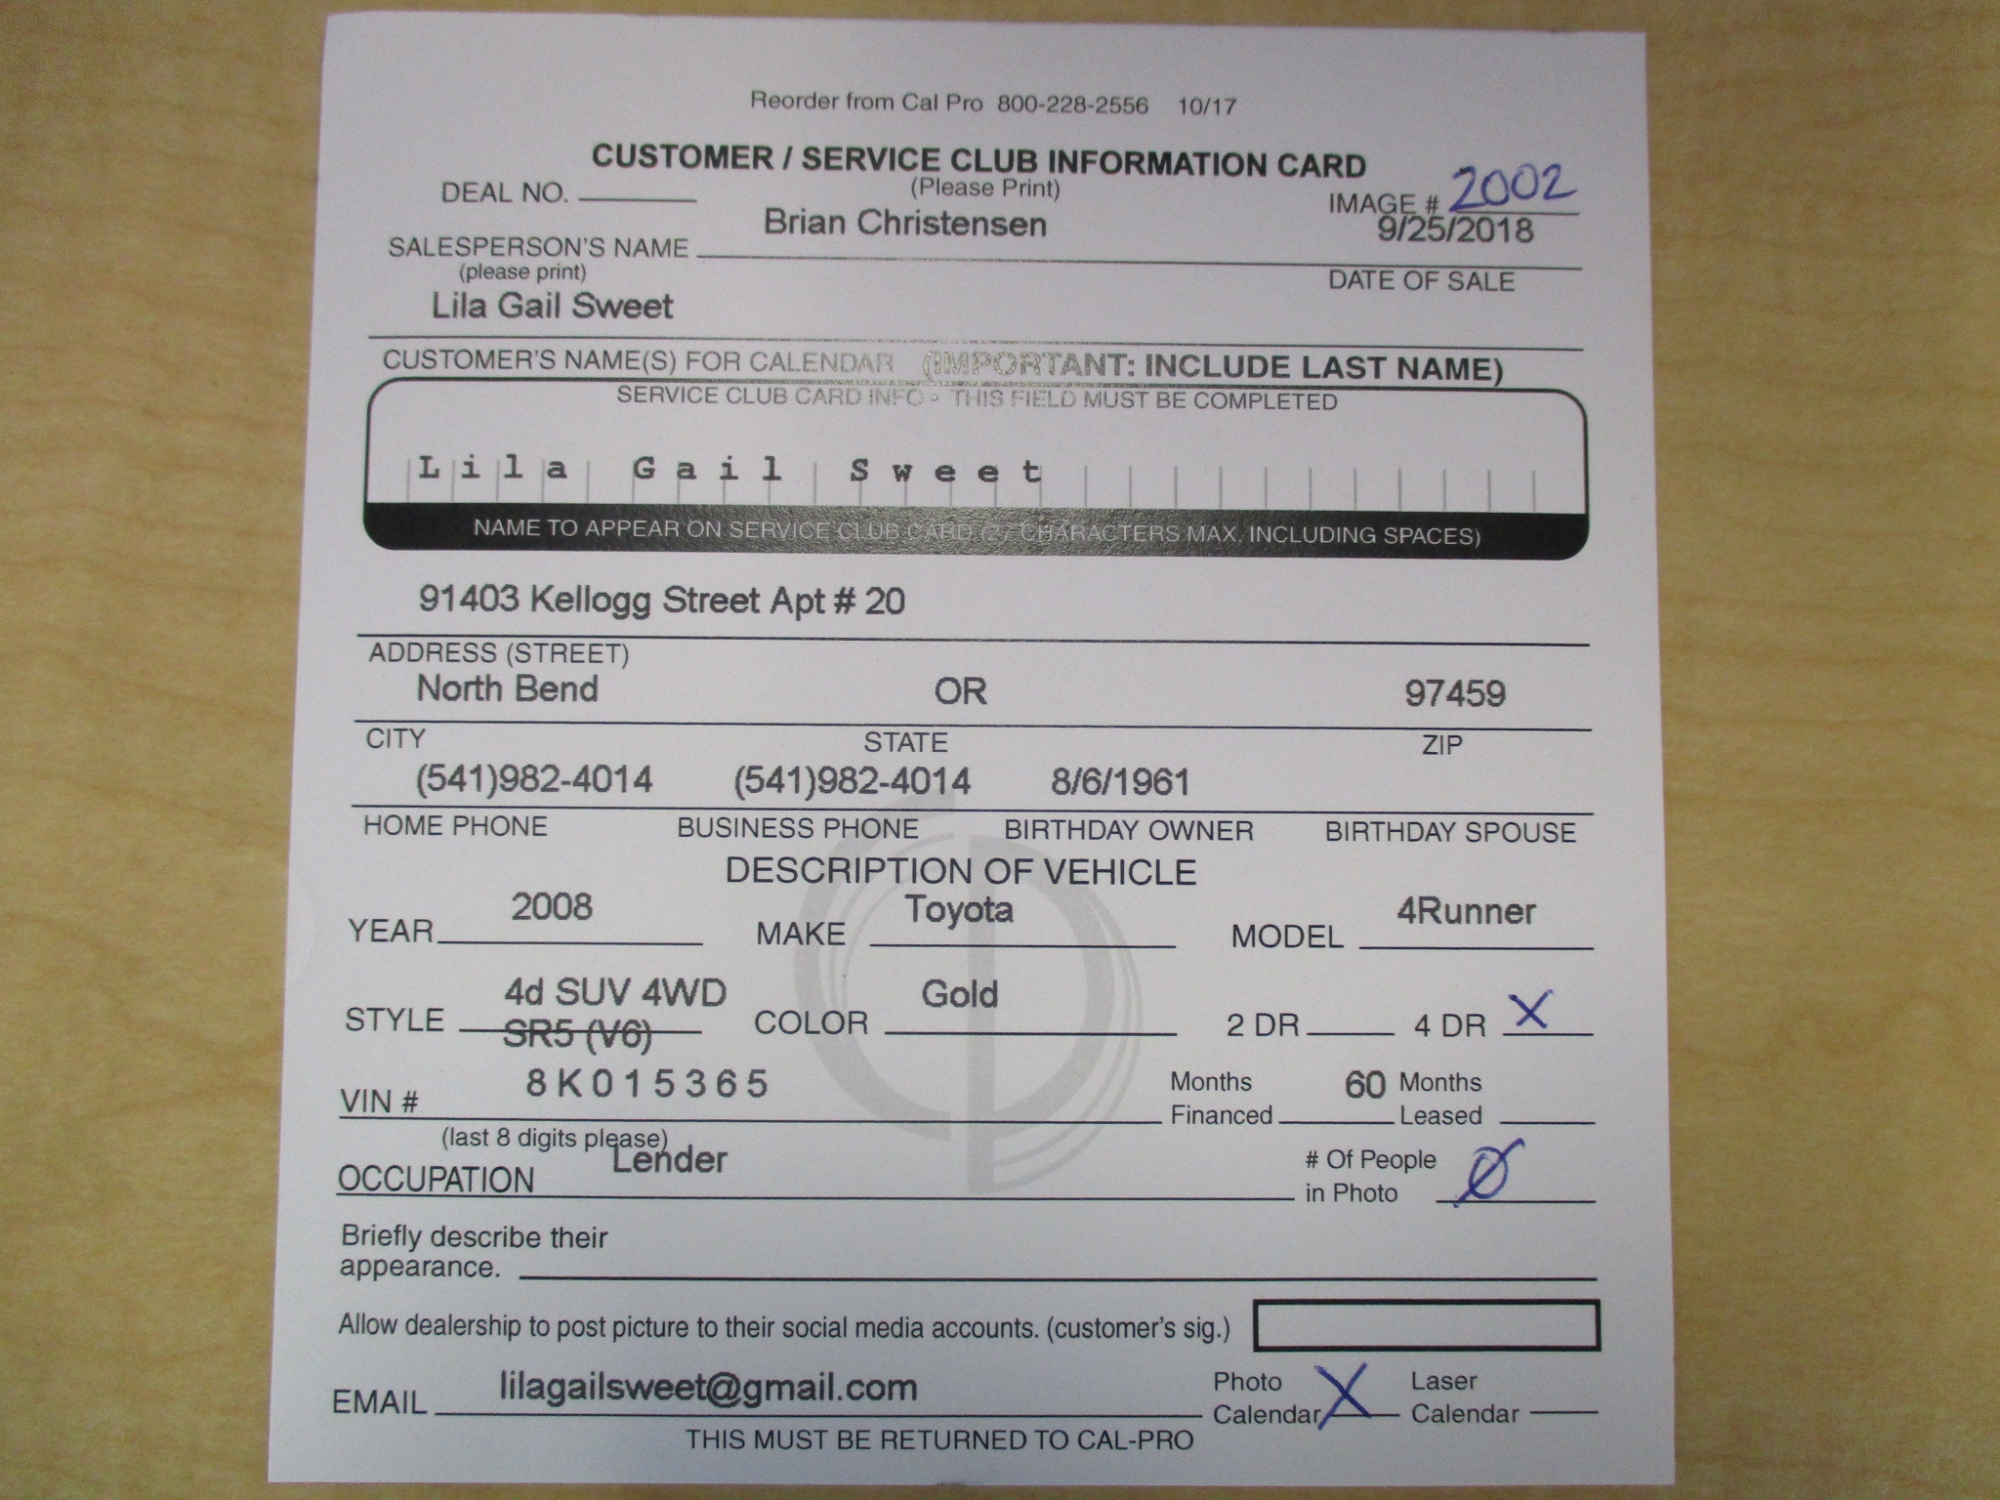 Reorder from Cal Pro 800-228-2556 10/17
CUSTOMER / SERVICE CLUB INFORMATION CARD
(Please Print)
DEAL NO.
IMAGE # 2002
Brian Christensen
9/25/2018
SALESPERSON'S NAME
(please print)
DATE OF SALE
Lila Gail Sweet
CUSTOMER'S NAME(S) FOR CALENDAR (IMPORTANT: INCLUDE LAST NAME)
SERVICE CLUB CARD INFO • THIS FIELD MUST BE COMPLETED
Lila Gail Sweet
NAME TO APPEAR ON SERVICE CLUB CARD (27 CHARACTERS MAX. INCLUDING SPACES)
91403 Kellogg Street Apt # 20
ADDRESS (STREET)
North Bend OR 97459
CITY STATE ZIP
(541)982-4014 (541)982-4014 8/6/1961
HOME PHONE BUSINESS PHONE BIRTHDAY OWNER BIRTHDAY SPOUSE
DESCRIPTION OF VEHICLE
YEAR 2008 MAKE Toyota MODEL 4Runner
4d SUV 4WD
STYLE SR5 (V6) COLOR Gold 2 DR 4 DR X
VIN # 8K015365 Months Financed 60 Months Leased
(last 8 digits please)
OCCUPATION Lender # Of People in Photo Ø
Briefly describe their
appearance.
Allow dealership to post picture to their social media accounts. (customer's sig.)
EMAIL lilagailsweet@gmail.com Photo Calendar X Laser Calendar
THIS MUST BE RETURNED TO CAL-PRO